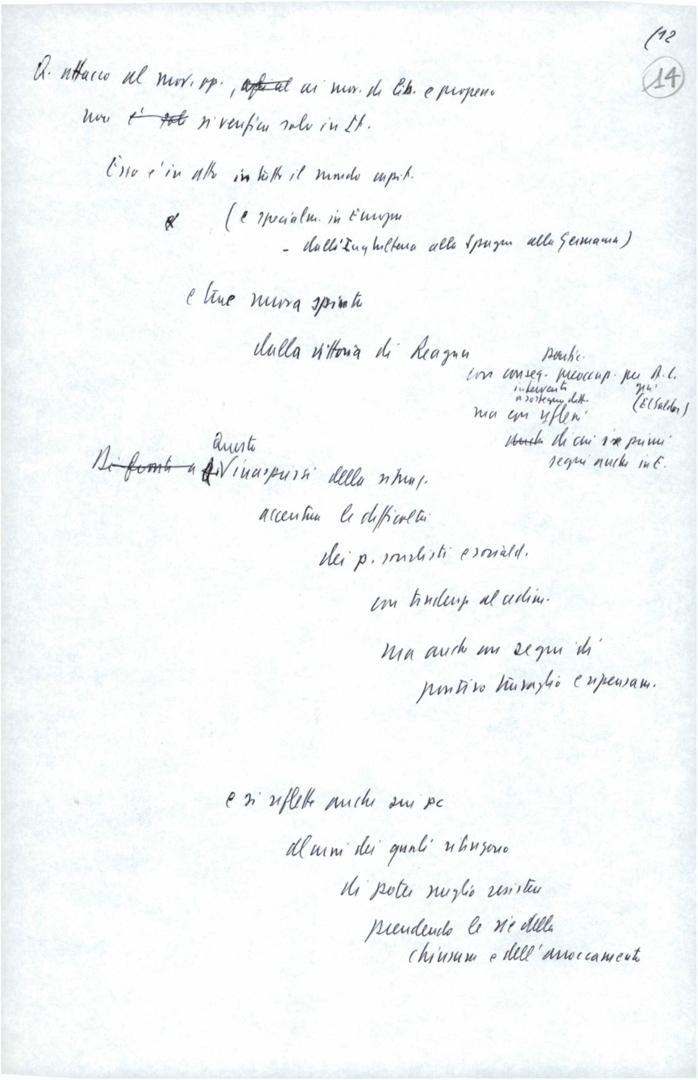 (12
14
Q. attacco al mov. op., ai mov. di lib. e progresso
non è sol si verifica solo in It.
Esso è in atto in tutto il mondo capit.
(e specialm. in Europa
- dall'Inghilterra alla Spagna alla Germania)
e trae nuova spinta
dalla vittoria di Reagan
con conseg. preoccup. per A.L.
interventi
a sostegno ditt.
già
(El Salvador)
ma con riflessi
anche di cui i primi
segni anche in E.
Questo
Di fronte a inasprirsi della situaz.
accentua le difficoltà
dei p. socialisti e sociald.
con tendenze al cedim.
ma anche con segni di
positivo travaglio e ripensam.
e si riflette anche sui pc
alcuni dei quali ritengono
di poter meglio resistere
prendendo le vie della
chiusura e dell'arroccamento